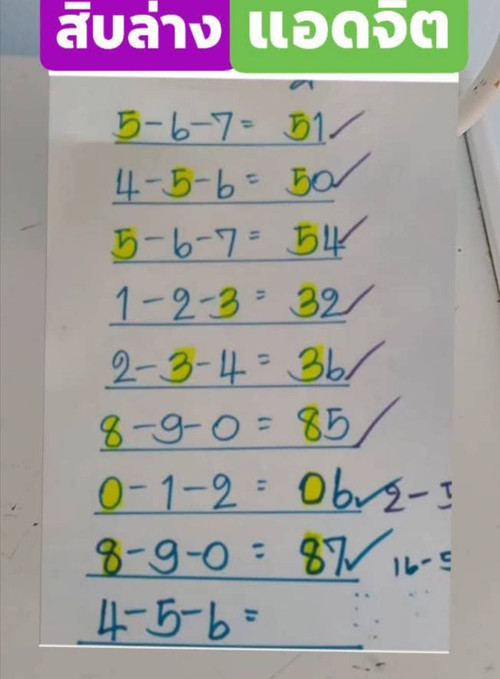 สิบล่าง แอดจิต
5-6-7= 51✓
4-5-6= 50✓
5-6-7= 54✓
1-2-3= 32✓
2-3-4= 36✓
8-9-0= 85✓
0-1-2= 06✓ 2-
8-9-0= 87✓ 16-5
4-5-6=